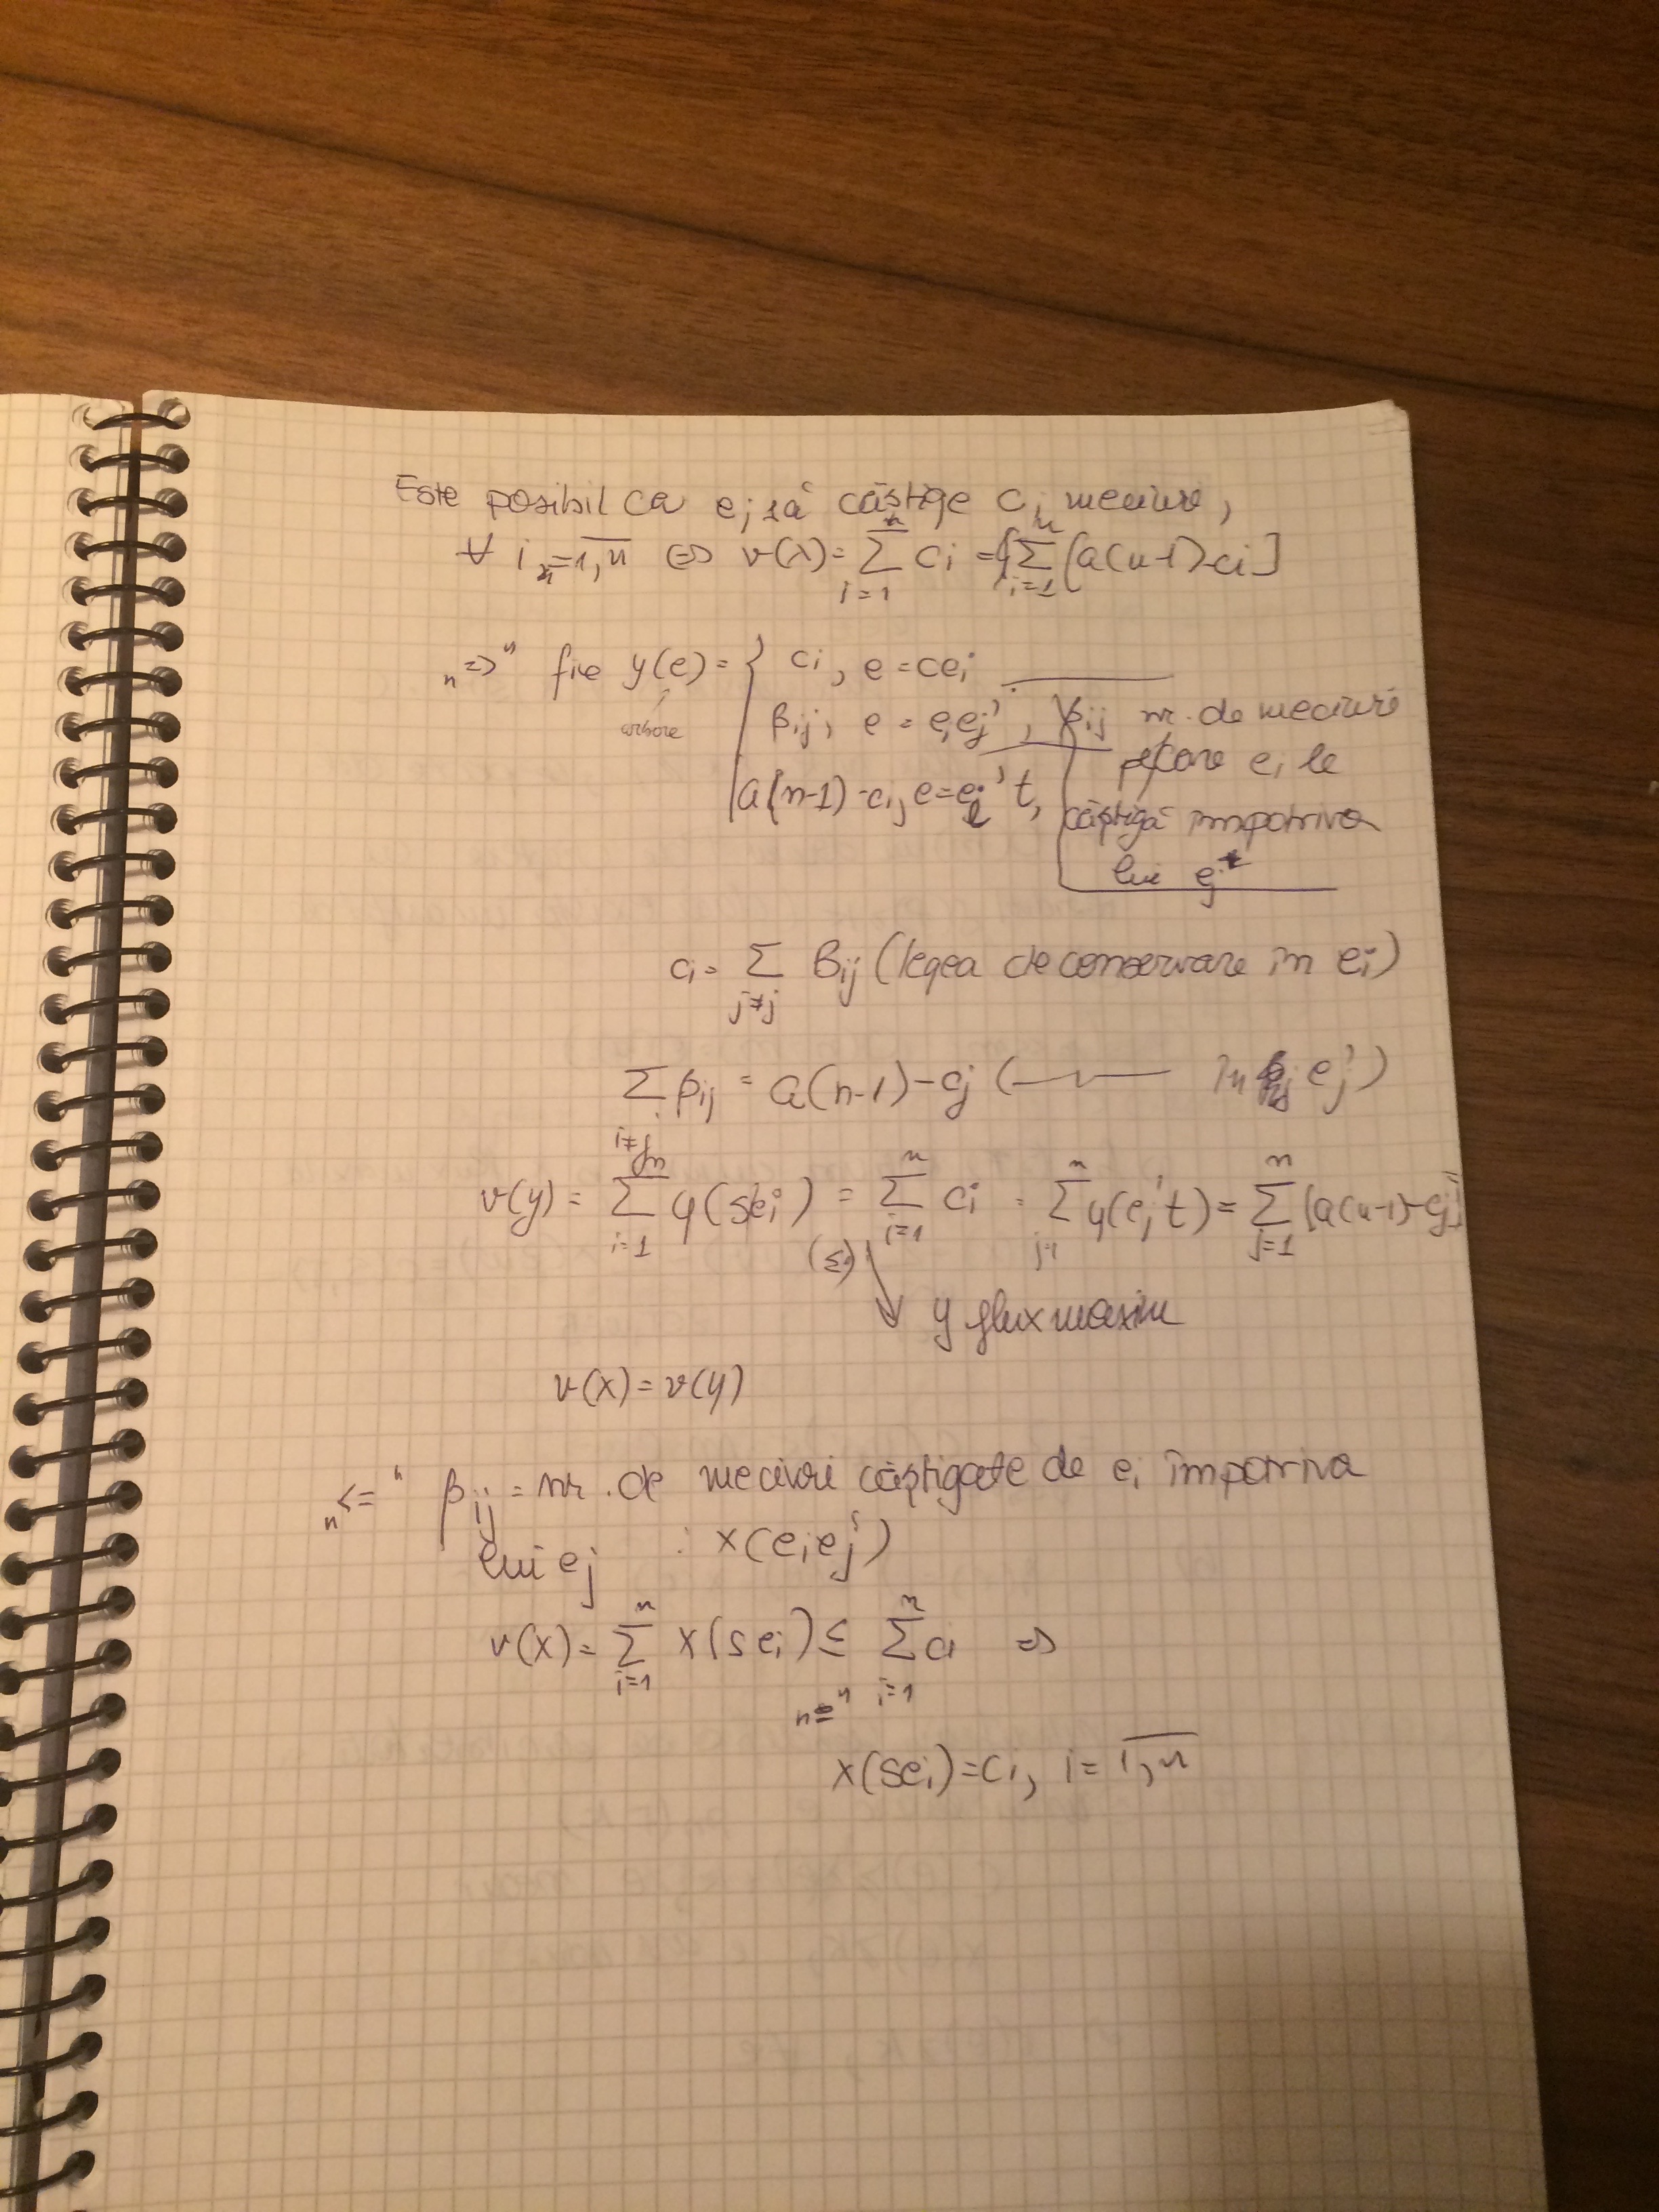 Este posibil ca ei să câștige ci meciuri,
∀ i = 1,n ⇔ v(x) = Σ_{i=1}^{n} ci = Σ_{i=1}^{n} [a(n-1)-ci]
"⇒" fie y(e) = { ci, e = cei
βij, e = eiej', βij nr. de meciuri
pe care ei le
a(n-1)-ci, e = ei't,
câștigă împotriva
lui ej
ci = Σ_{j≠j} βij (legea de conservare în ei)
Σ_{i≠j} βij = a(n-1)-cj ( —〃— în ej')
v(y) = Σ_{i=1}^{n} y(sei) = Σ_{i=1}^{n} ci = Σ_{j=1}^{n} y(ej't) = Σ_{j=1}^{n} [a(n-1)-cj]
(≤) ↘ y flux maxim
v(x) = v(y)
"⇐" βij = nr. de meciuri câștigate de ei împotriva
lui ej : x(eiej')
v(x) = Σ_{i=1}^{n} x(sei) ≤ Σ_{i=1}^{n} ci ⇒
"="
x(sei) = ci, i = 1,n